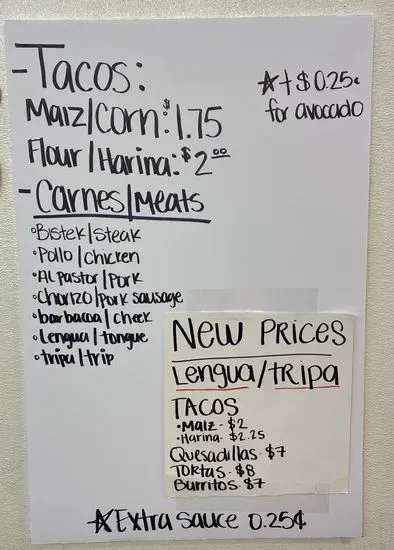 - Tacos:
Maiz/Corn: $1.75
Flour/Harina: $2.00
☆ + $0.25¢
for avocado
- Carnes/Meats
◦Bistek/steak
◦Pollo/chicken
◦Al pastor/pork
◦Chorizo/pork sausage
◦barbacoa/cheek
◦Lengua/tongue
◦tripa/trip
New Prices
Lengua/tripa
TACOS
•Maiz - $2
•Harina - $2.25
Quesadillas - $7
Tortas - $8
Burritos - $7
☆Extra sauce 0.25¢